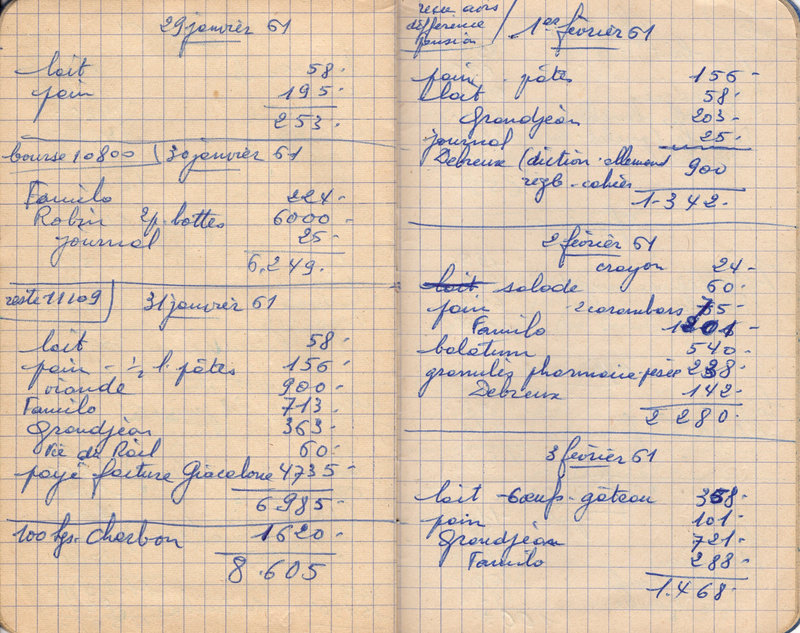 29 janvier 61
lait 58.-
pain 195.-
253.-
bourse 10800 30 janvier 61
Familo 224-
Robin 2p. bottes 6000-
journal 25-
6.249.-
reste 11109 31 janvier 61
lait 58.-
pain - ½ l. pâtes 156-
viande 900-
Familo 713-
Grandjean 363-
Vie du Rail 60-
payé facture Giacalone 4735-
6985-
100 kgs. Charbon 1620-
8.605
différence
pension
1er février 61
pain pâtes 156-
lait 58-
Grandjean 203-
journal 25-
Debreux (diction. allemand 900
cahier
1.342-
2 février 61
crayon 24-
lait salade 60-
pain 2 carambars
Familo
balatum 540-
granulés pharmacie
Debreux 142-
2280-
3 février 61
lait - 6 œufs - gâteau 358-
pain 101-
Grandjean 721-
Familo 288-
1.468-